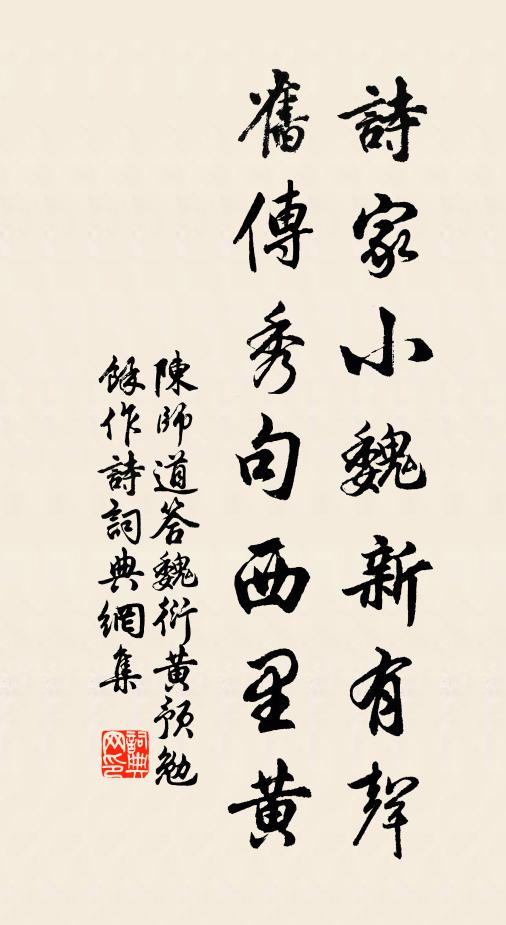 詩家小魏新有聲
舊傳秀句西里黃
陳師道答魏衍黃預勉
餘作詩詞典網集
詞典網印